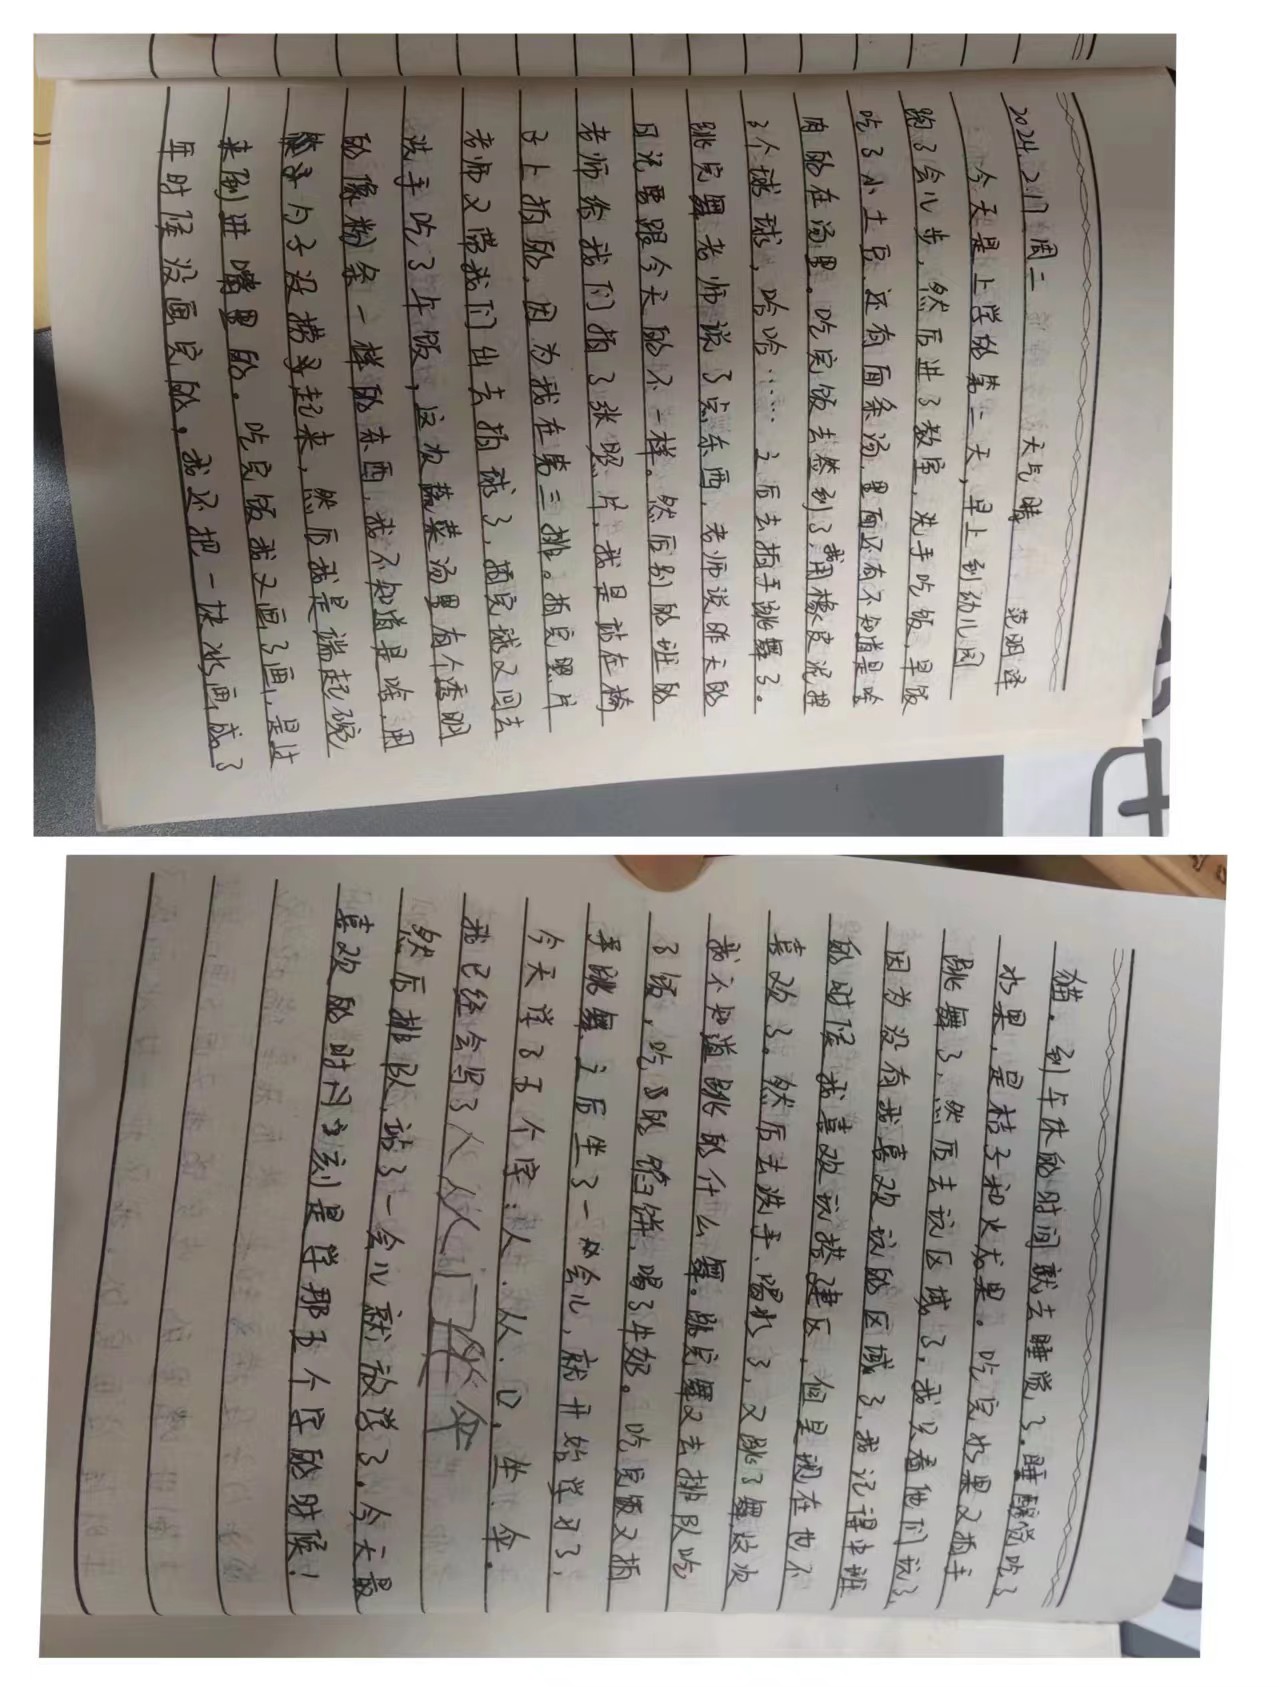 2024.2.17 周二 天气晴 范明泽
今天是上学的第二天，早上到幼儿园
跑了会儿步，然后进了教室，洗手吃饭，早饭
吃了小土豆、还有面条汤，里面还有不知道是啥
肉的在汤里。吃完饭去然到了我用橡皮泥捏
了个球球，哈哈……之后去拍手跳舞了。
跳完舞老师说了点东西，老师说昨天的
日记要跟今天的不一样，然后别的班的
老师给我们拍了张照片，我是站在椅
子上拍的，因为我在第三排。拍完照片
老师又带我们出去拍球了，拍完球又回去
洗手吃了午饭，这次蔬菜汤里有个透明
的像粉条一样的东西，我不知道是啥，用
勺子没捞起来，然后我是端起碗
来倒进嘴里的。吃完饭我又画了画，是过
年时候没画完的。我还把一块冰画成了
猫。到午休的时间就去睡觉了。睡醒觉吃了
水果，是桔子和火龙果。吃完水果又拍手
跳舞了，然后去玩区域了，我只看他们玩了，
因为没有我喜欢玩的区域了，我记得中班
的时候我喜欢玩搭建区，但是现在也不
喜欢了。然后去洗手、喝水了，又跳了舞，这次
我不知道跳的什么舞。跳完舞又去排队吃
了饭，吃了的馅饼，喝了牛奶。吃完饭又拍
手跳舞，之后坐了一会儿，就开始学习了，
今天学了五个字：人、从、口、坐、伞。
我已经会写了人 从 人 口 坐 伞
然后排队，站了一会儿就放学了。今天最
喜欢的时刻是学那五个字的时候！